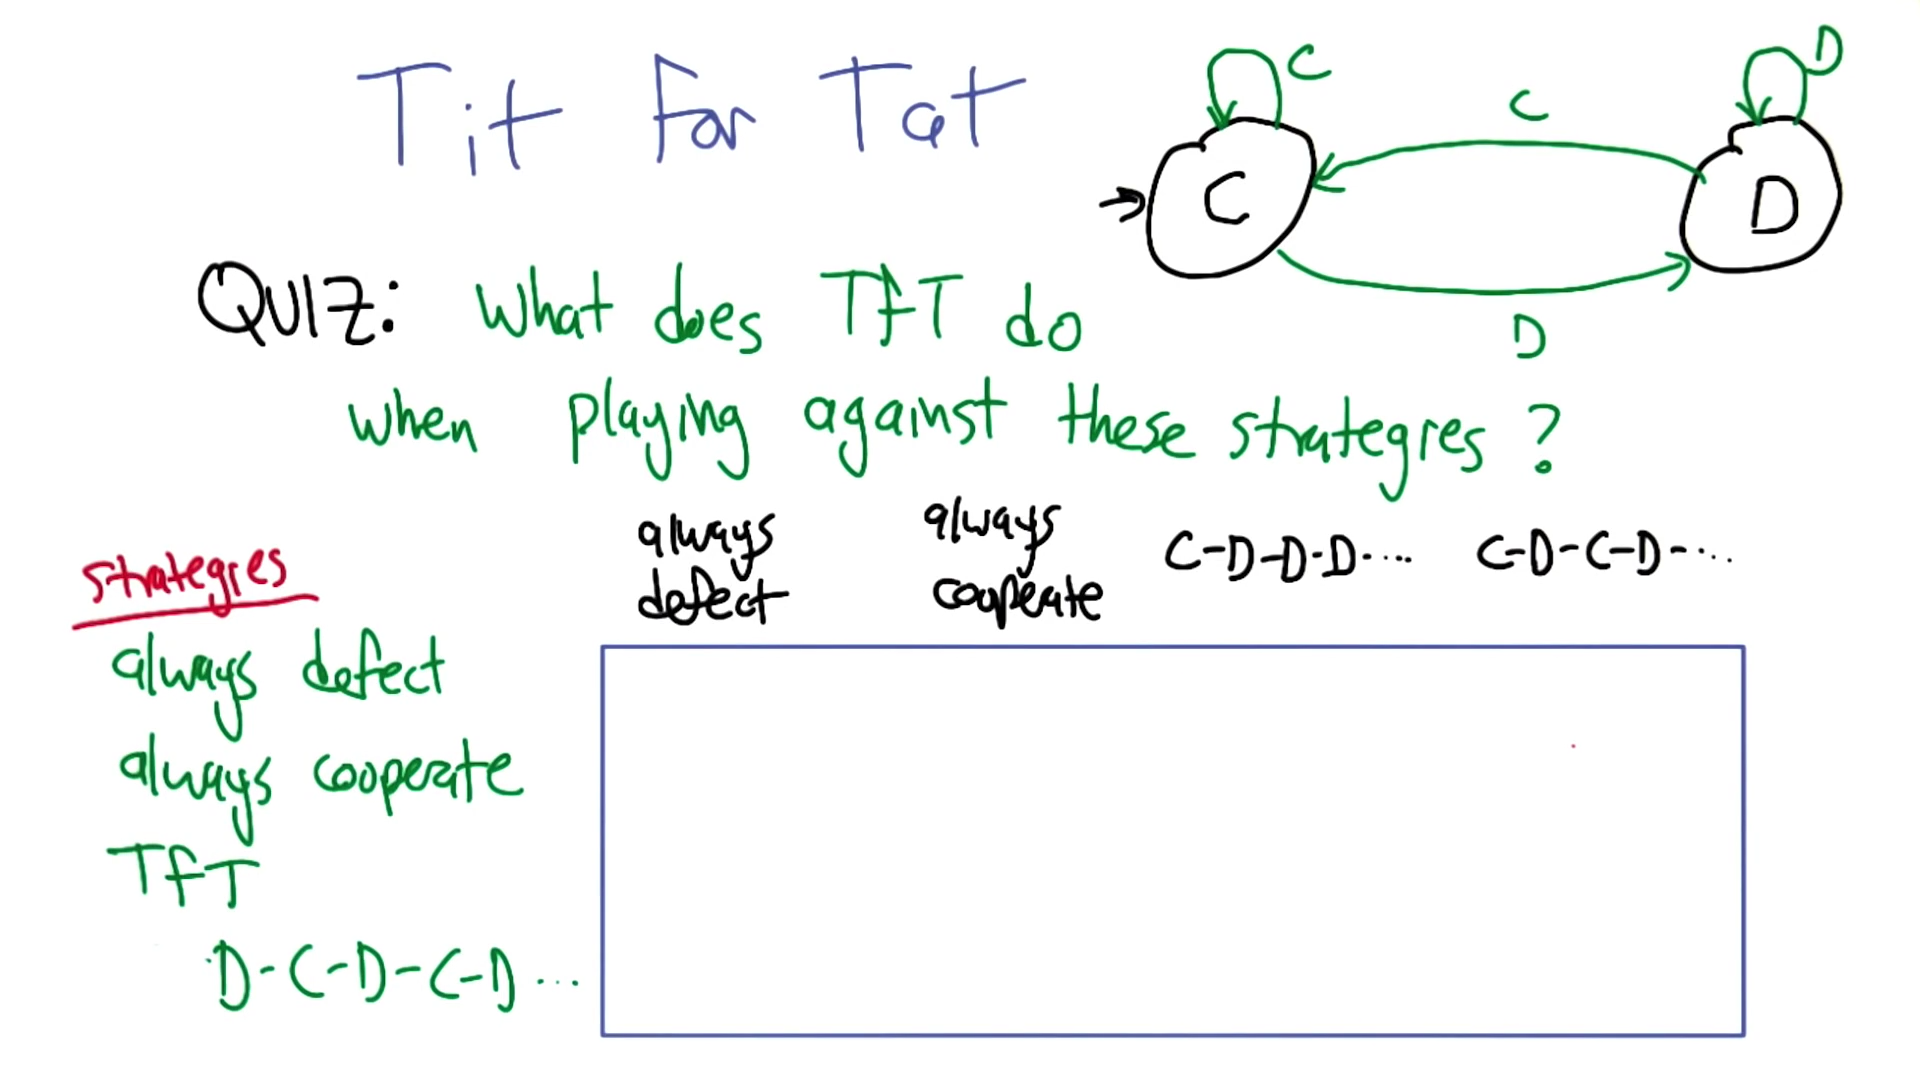 Tit for Tat
C
D
C
C
D
D
QUIZ: What does TfT do
when playing against these strategies?
always defect
always cooperate
C-D-D-D-....
C-D-C-D-....
strategies
always defect
always cooperate
TfT
D-C-D-C-D...